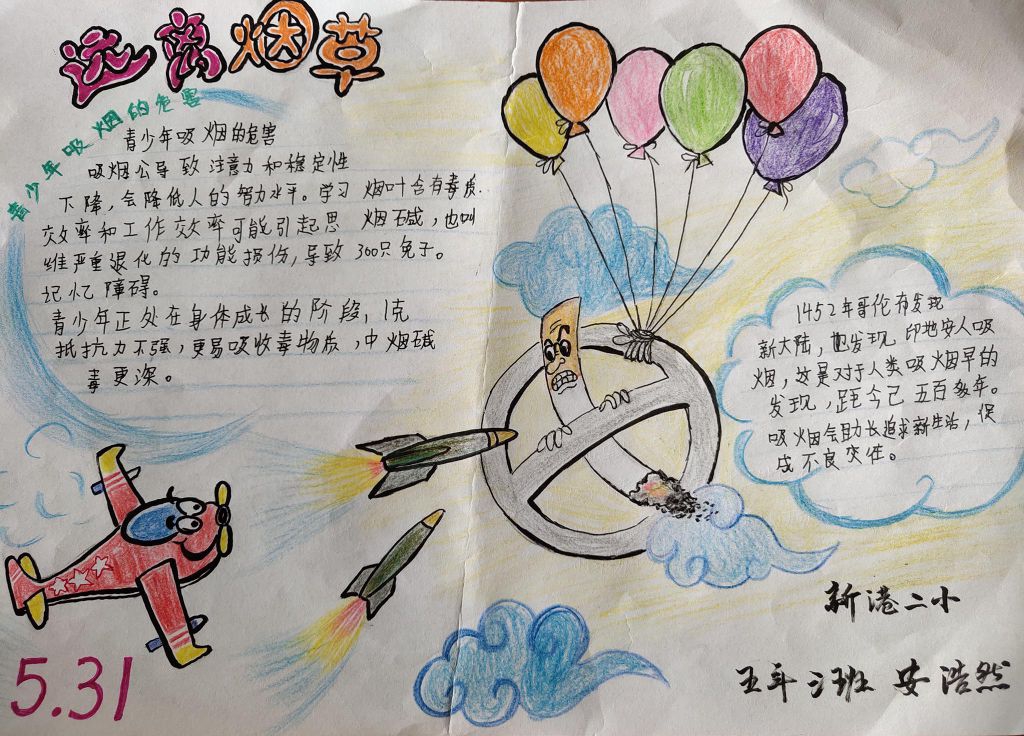 远离烟草
青少年吸烟的危害
青少年吸烟的危害
吸烟公导致注意力和稳定性
下降，会降低人的努力水平。学习
效率和工作效率可能引起思
维严重退化的功能损伤，导致
记忆障碍。
青少年正处在身体成长的阶段，1克
抵抗力不强，更易吸收毒物质，中烟碱
毒更深。
烟叶含有毒质.
烟碱，也叫
300只兔子。
1452年哥伦布发现
新大陆，也发现印地安人吸
烟，这是对于人类吸烟早的
发现，距今已五百多年。
吸烟会助长追求新生活，促
成不良交往。
新港二小
五年三班 安浩然
5.31